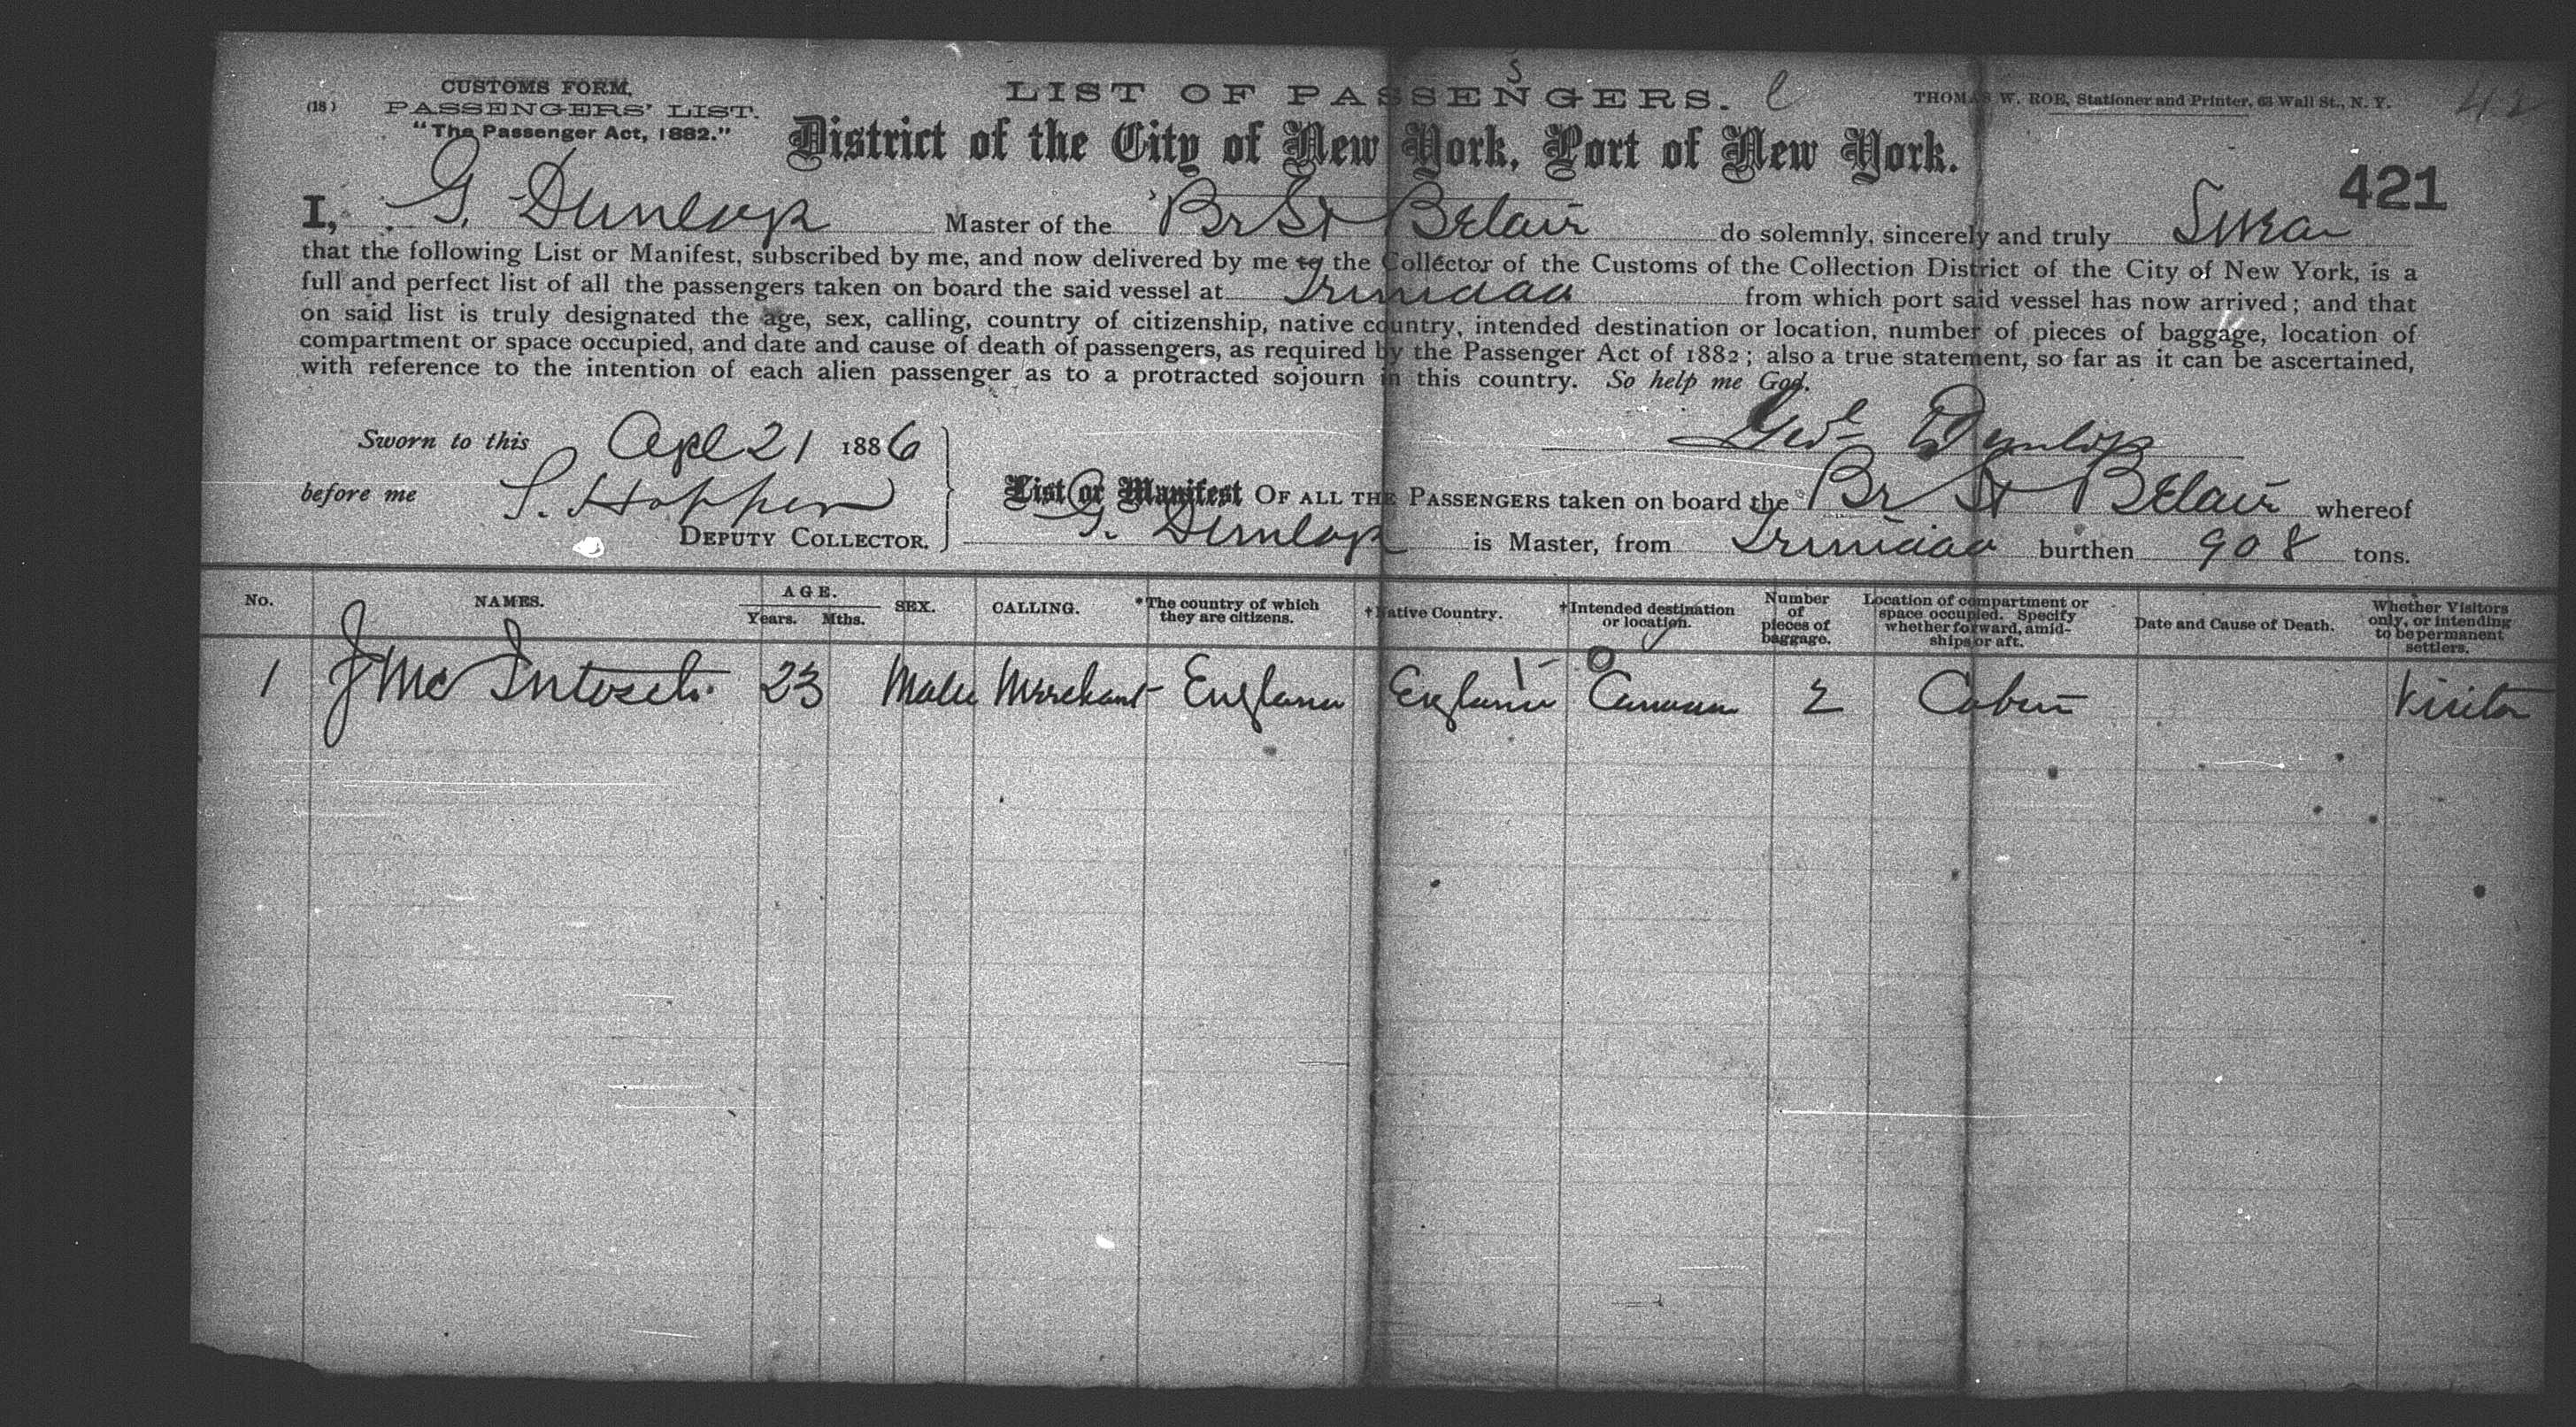 CUSTOMS FORM,
(18) PASSENGERS' LIST.
"The Passenger Act, 1882."
LIST OF PASSENGERS.
THOMAS W. ROE, Stationer and Printer, 63 Wall St., N. Y.
42
District of the City of New York, Port of New York.
421
I, G. Dunlop Master of the Br St Belair do solemnly, sincerely and truly Swear
that the following List or Manifest, subscribed by me, and now delivered by me to the Collector of the Customs of the Collection District of the City of New York, is a
full and perfect list of all the passengers taken on board the said vessel at Trinidad from which port said vessel has now arrived; and that
on said list is truly designated the age, sex, calling, country of citizenship, native country, intended destination or location, number of pieces of baggage, location of
compartment or space occupied, and date and cause of death of passengers, as required by the Passenger Act of 1882; also a true statement, so far as it can be ascertained,
with reference to the intention of each alien passenger as to a protracted sojourn in this country. So help me God.
Sworn to this Apl 21 1886
Geo Dunlop
before me S. Hopper
DEPUTY COLLECTOR.
List or Manifest OF ALL THE PASSENGERS taken on board the Br St Belair whereof
G. Dunlop is Master, from Trinidad burthen 908 tons.
No. NAMES. AGE. Years. Mths. SEX. CALLING. *The country of which they are citizens. †Native Country. †Intended destination or location. Number of pieces of baggage. Location of compartment or space occupied. Specify whether forward, amidships or aft. Date and Cause of Death. Whether Visitors only, or intending to be permanent settlers.
1 J Mc Intosch 23 Male Merchant England England Canada 2 Cabin Visitor